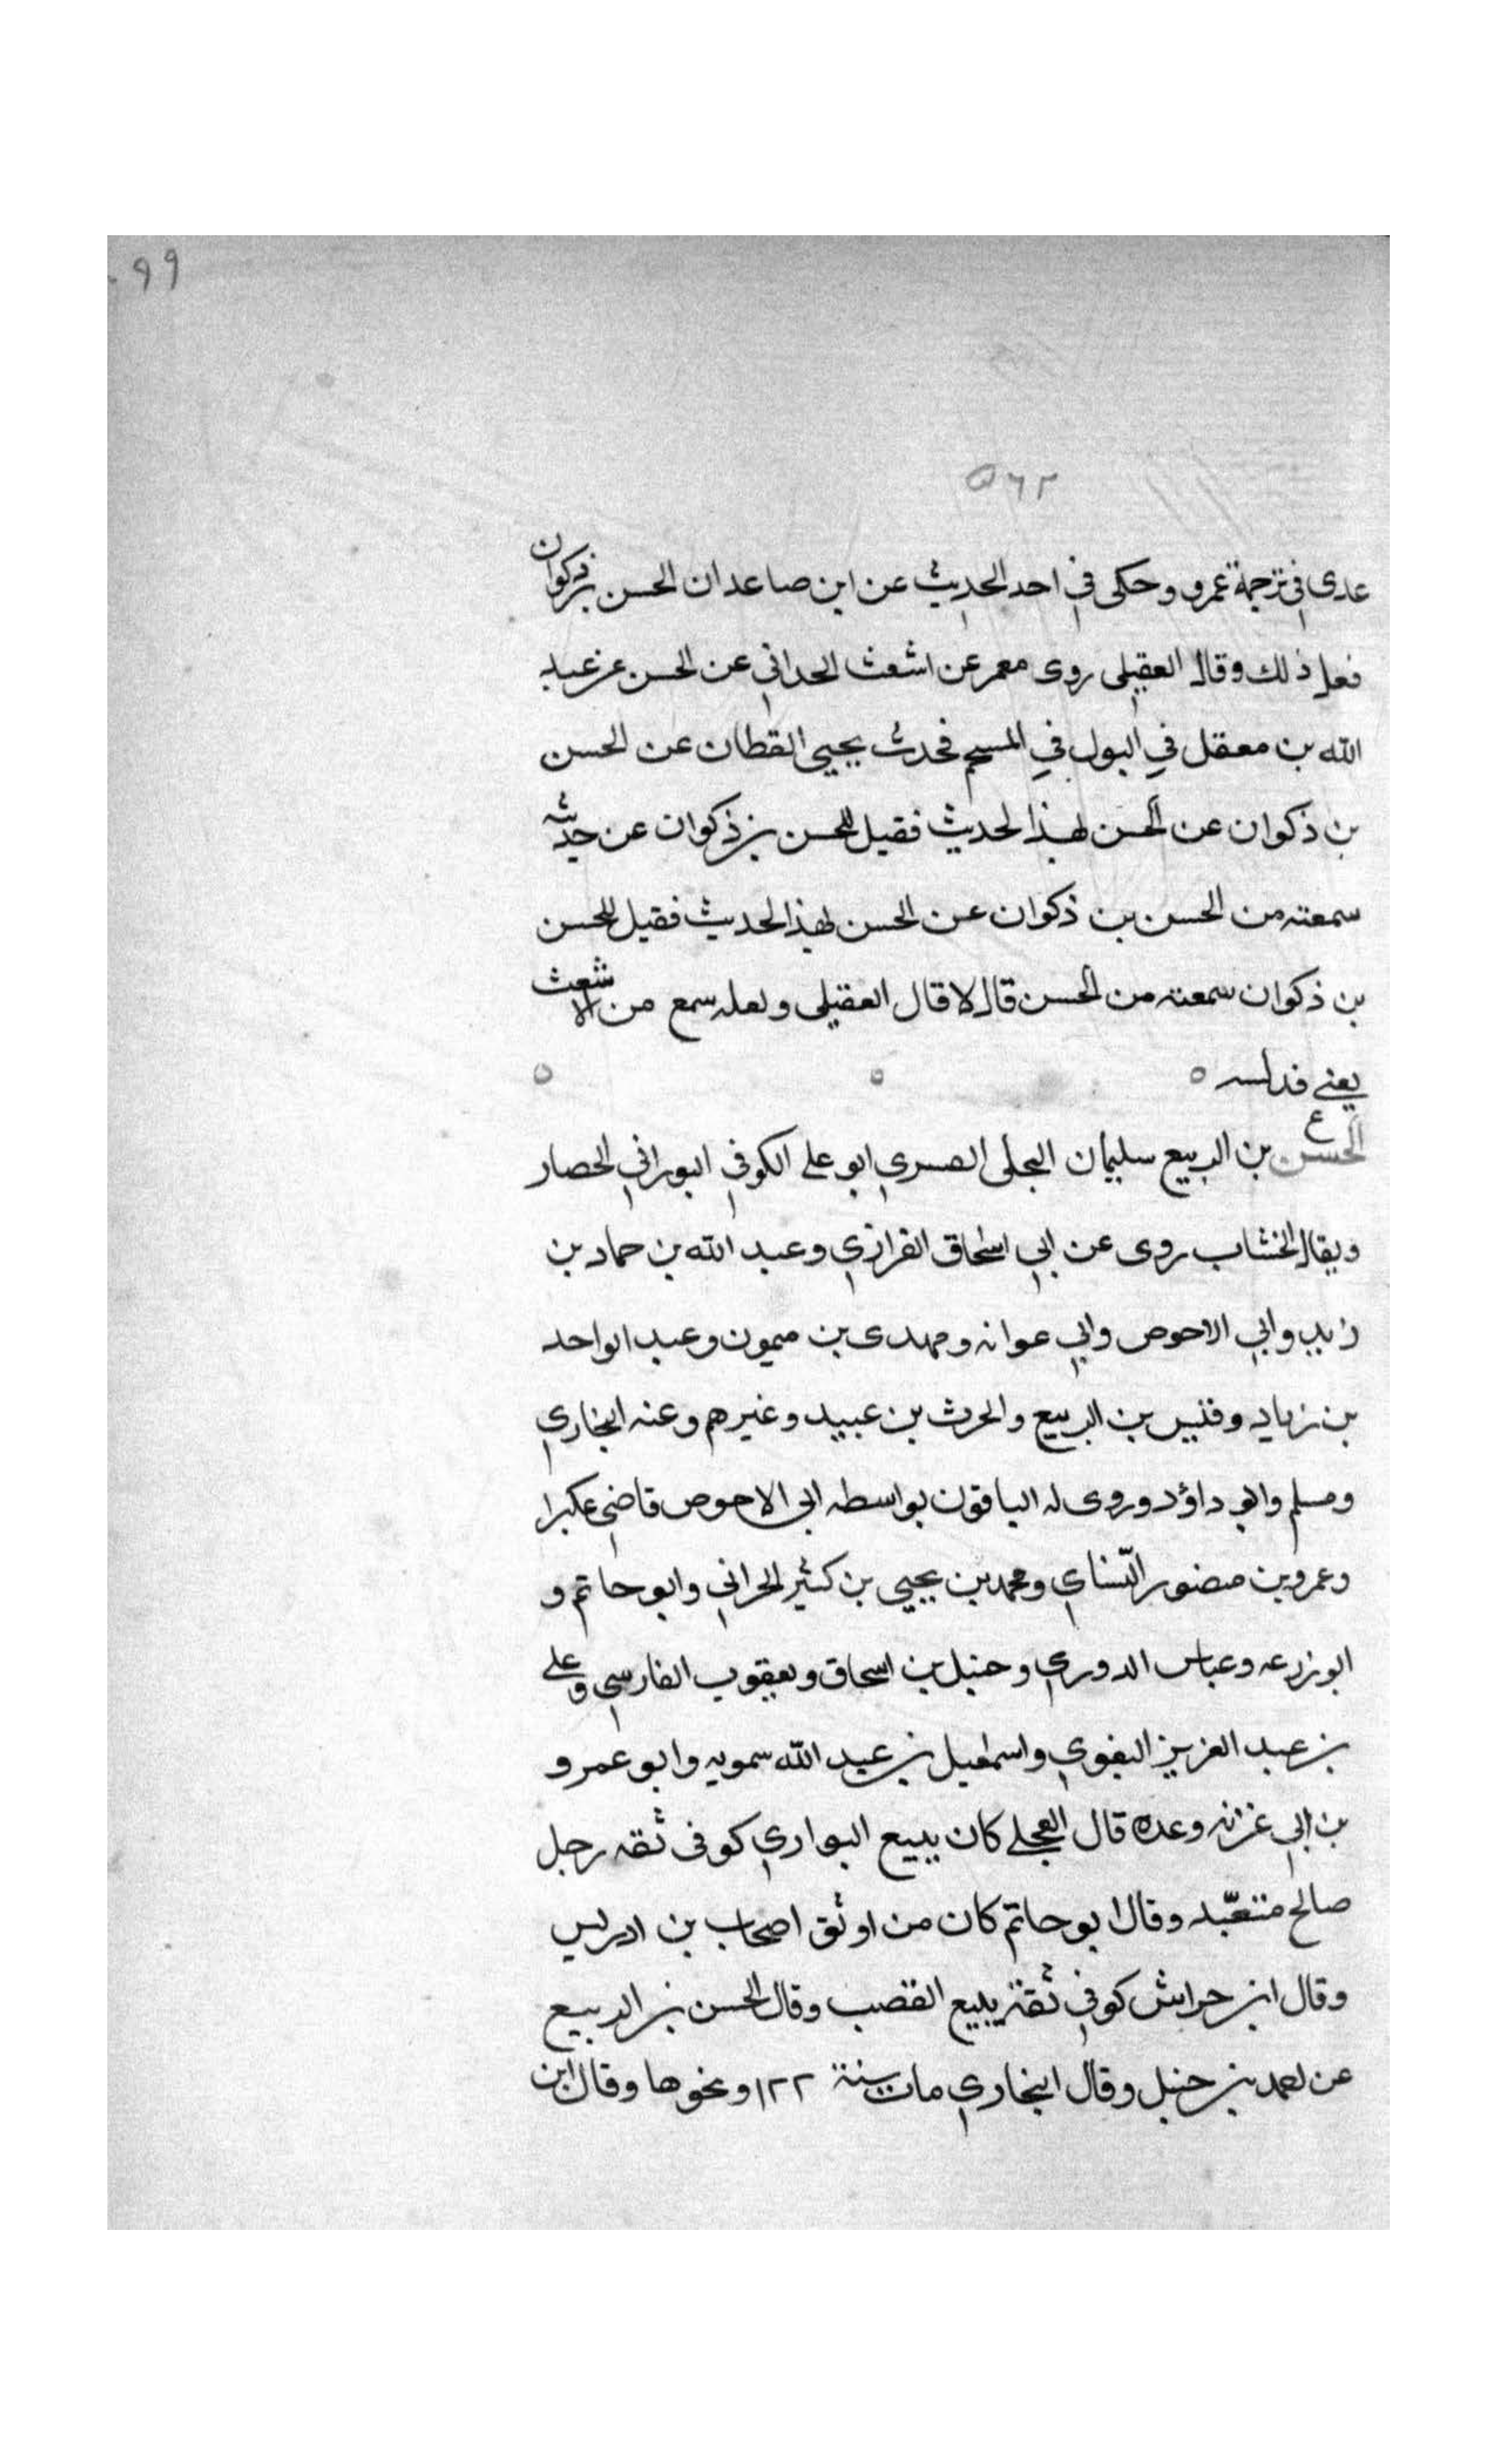 ٩٩
٥٦٢
عدى في ترجمة عمرو وحكى في احد الحديث عن ابن صاعد ان الحسن بن ذكوان
فعل ذلك وقال العقيلى روى معمر عن اشعث الحدانى عن الحسن عن عبد
الله بن معقل في البول في المستحم فحدث يحيى القطان عن الحسن
بن ذكوان عن الحسن بهذا الحديث فقيل للحسن بن ذكوان عن حديثه
سمعته من الحسن بن ذكوان عن الحسن بهذا الحديث فقيل للحسن
بن ذكوان سمعته من الحسن قال لا قال العقيلى ولعله سمع من الاشعث
يعنى فدلسه ٥ ٥ ٥
ع
الحسن بن الربيع سليمان البجلى القسري ابو على الكوفي البوراني الحصار
ويقال الخشاب روى عن ابي اسحاق الفزازي وعبد الله بن حماد بن
زيد وابي الاحوص وابي عوانه ومهدى بن ميمون وعبد الواحد
بن زياد وقيس بن الربيع والحرث بن عبيد وغيرهم وعنه البخاري
ومسلم وابو داؤد وروى له الباقون بواسطه ابى الاحوص قاضى عكبرا
وعمرو بن منصور النسّاي ومحمد بن يحيى بن كثير الحراني وابو حاتم و
ابو زرعه وعباس الدوري وحنبل بن اسحاق ويعقوب الفارسي وعلى
بن عبد العزيز البغوي واسمعيل بن عبد الله سمويه وابو عمرو
بن ابي غرزه وعده قال العجلى كان يبيع البواري كوفى ثقه رجل
صالح متعبّد وقال ابو حاتم كان من اوثق اصحاب بن ادريس
وقال ابن حراش كوفي ثقة يبيع القصب وقال الحسن بن الربيع
عن احمد بن حنبل وقال البخاري مات سنة ١٢٢ ونحوها وقال ابن